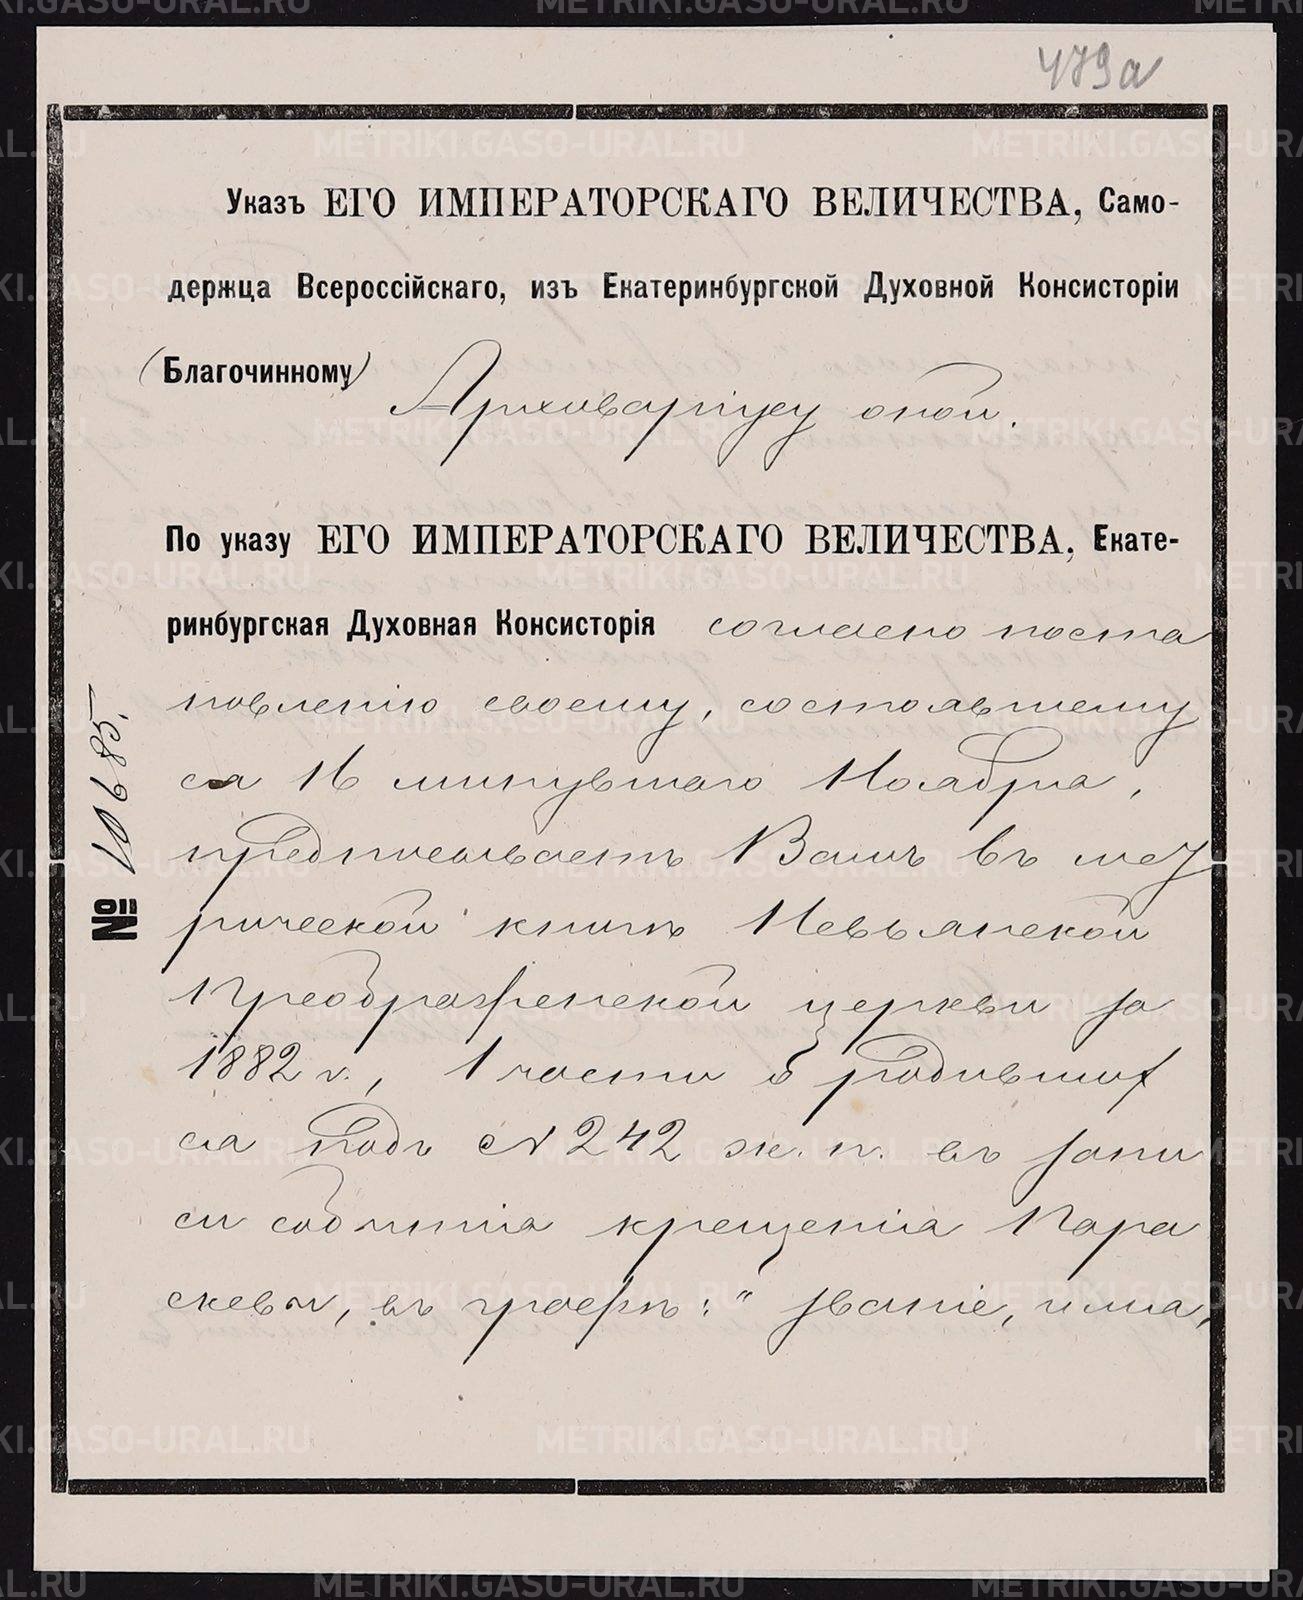 479а
Указъ ЕГО ИМПЕРАТОРСКАГО ВЕЛИЧЕСТВА, Само-
держца Всероссійскаго, изъ Екатеринбургской Духовной Консисторіи
(Благочинному) Архиваріусу оной.
По указу ЕГО ИМПЕРАТОРСКАГО ВЕЛИЧЕСТВА, Екате-
ринбургская Духовная Консисторія согласно поста
новленію своему, состоявшему
ся 16 минувшаго Ноября,
предписываетъ Вамъ въ мет
рической книгѣ Невьянской
Преображенской церкви за
1882 г., 1 части о родивших
ся подъ № 242 ж. п. въ запи
си события крещенія Пара
скевы, въ графѣ: "званіе, имя,
№ 10685.
METRIKI.GASO-URAL.RU